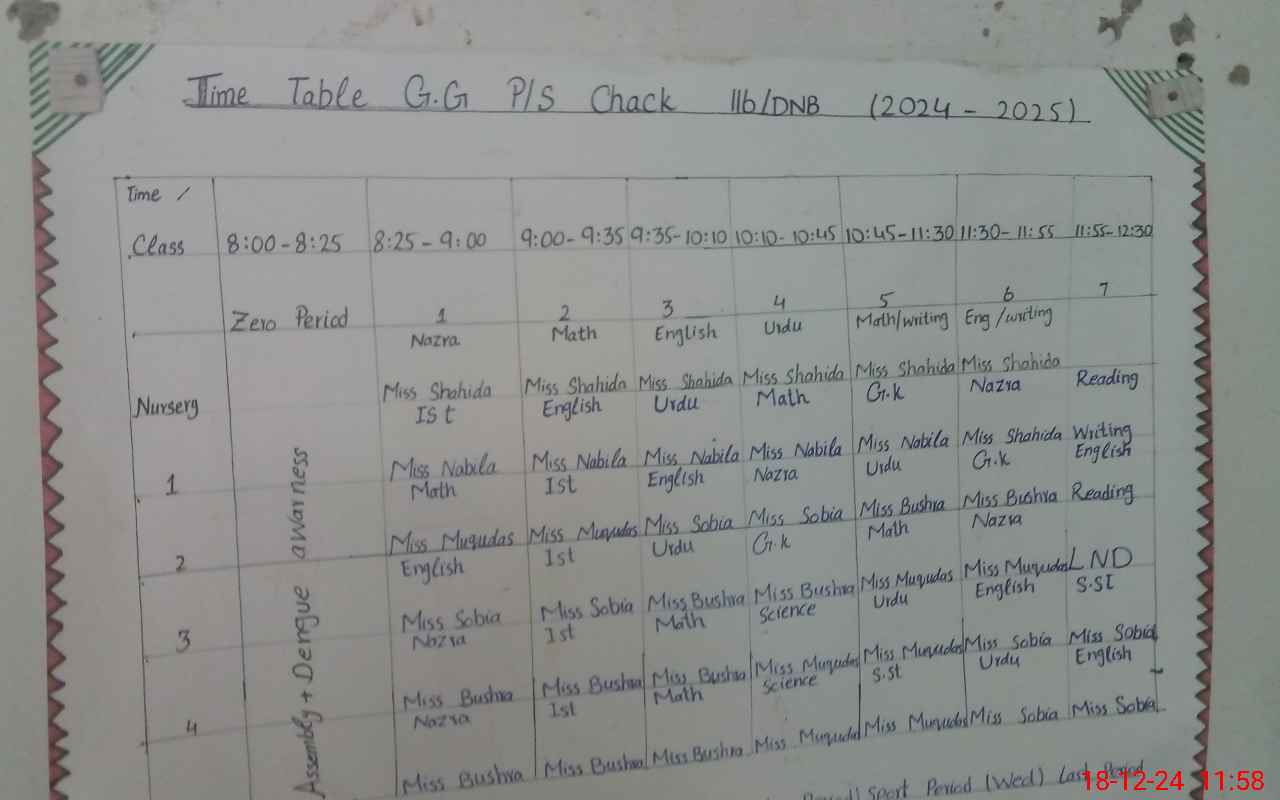 Time Table G.G P/S Chack 116/DNB (2024 - 2025)
Time /
Class 8:00-8:25 8:25-9:00 9:00-9:35 9:35-10:10 10:10-10:45 10:45-11:30 11:30-11:55 11:55-12:30
Zero Period 1 2 3 4 5 6 7
Nazra Math English Urdu Math/writing Eng/writing
Nursery Miss Shahida Miss Shahida Miss Shahida Miss Shahida Miss Shahida Miss Shahida Reading
ISt English Urdu Math G.k Nazra
1 Miss Nabila Miss Nabila Miss Nabila Miss Nabila Miss Nabila Miss Shahida Writing
Math Ist English Nazra Urdu G.k English
2 Miss Muqudas Miss Muqudas Miss Sobia Miss Sobia Miss Bushra Miss Bushra Reading
English Ist Urdu G.k Math Nazra
3 Miss Sobia Miss Sobia Miss Bushra Miss Bushra Miss Muqudas Miss Muqudas LND
Nazra Ist Math Science Urdu English S.St
4 Miss Bushra Miss Bushra Miss Bushra Miss Muqudas Miss Muqudas Miss Sobia Miss Sobia
Nazra Ist Math Science S.St Urdu English
Miss Bushra Miss Bushra Miss Bushra Miss Muqudas Miss Muqudas Miss Sobia Miss Sobia
Assembly + Dengue awarness
Period) Sport Period (Wed) Last Period
18-12-24 11:58